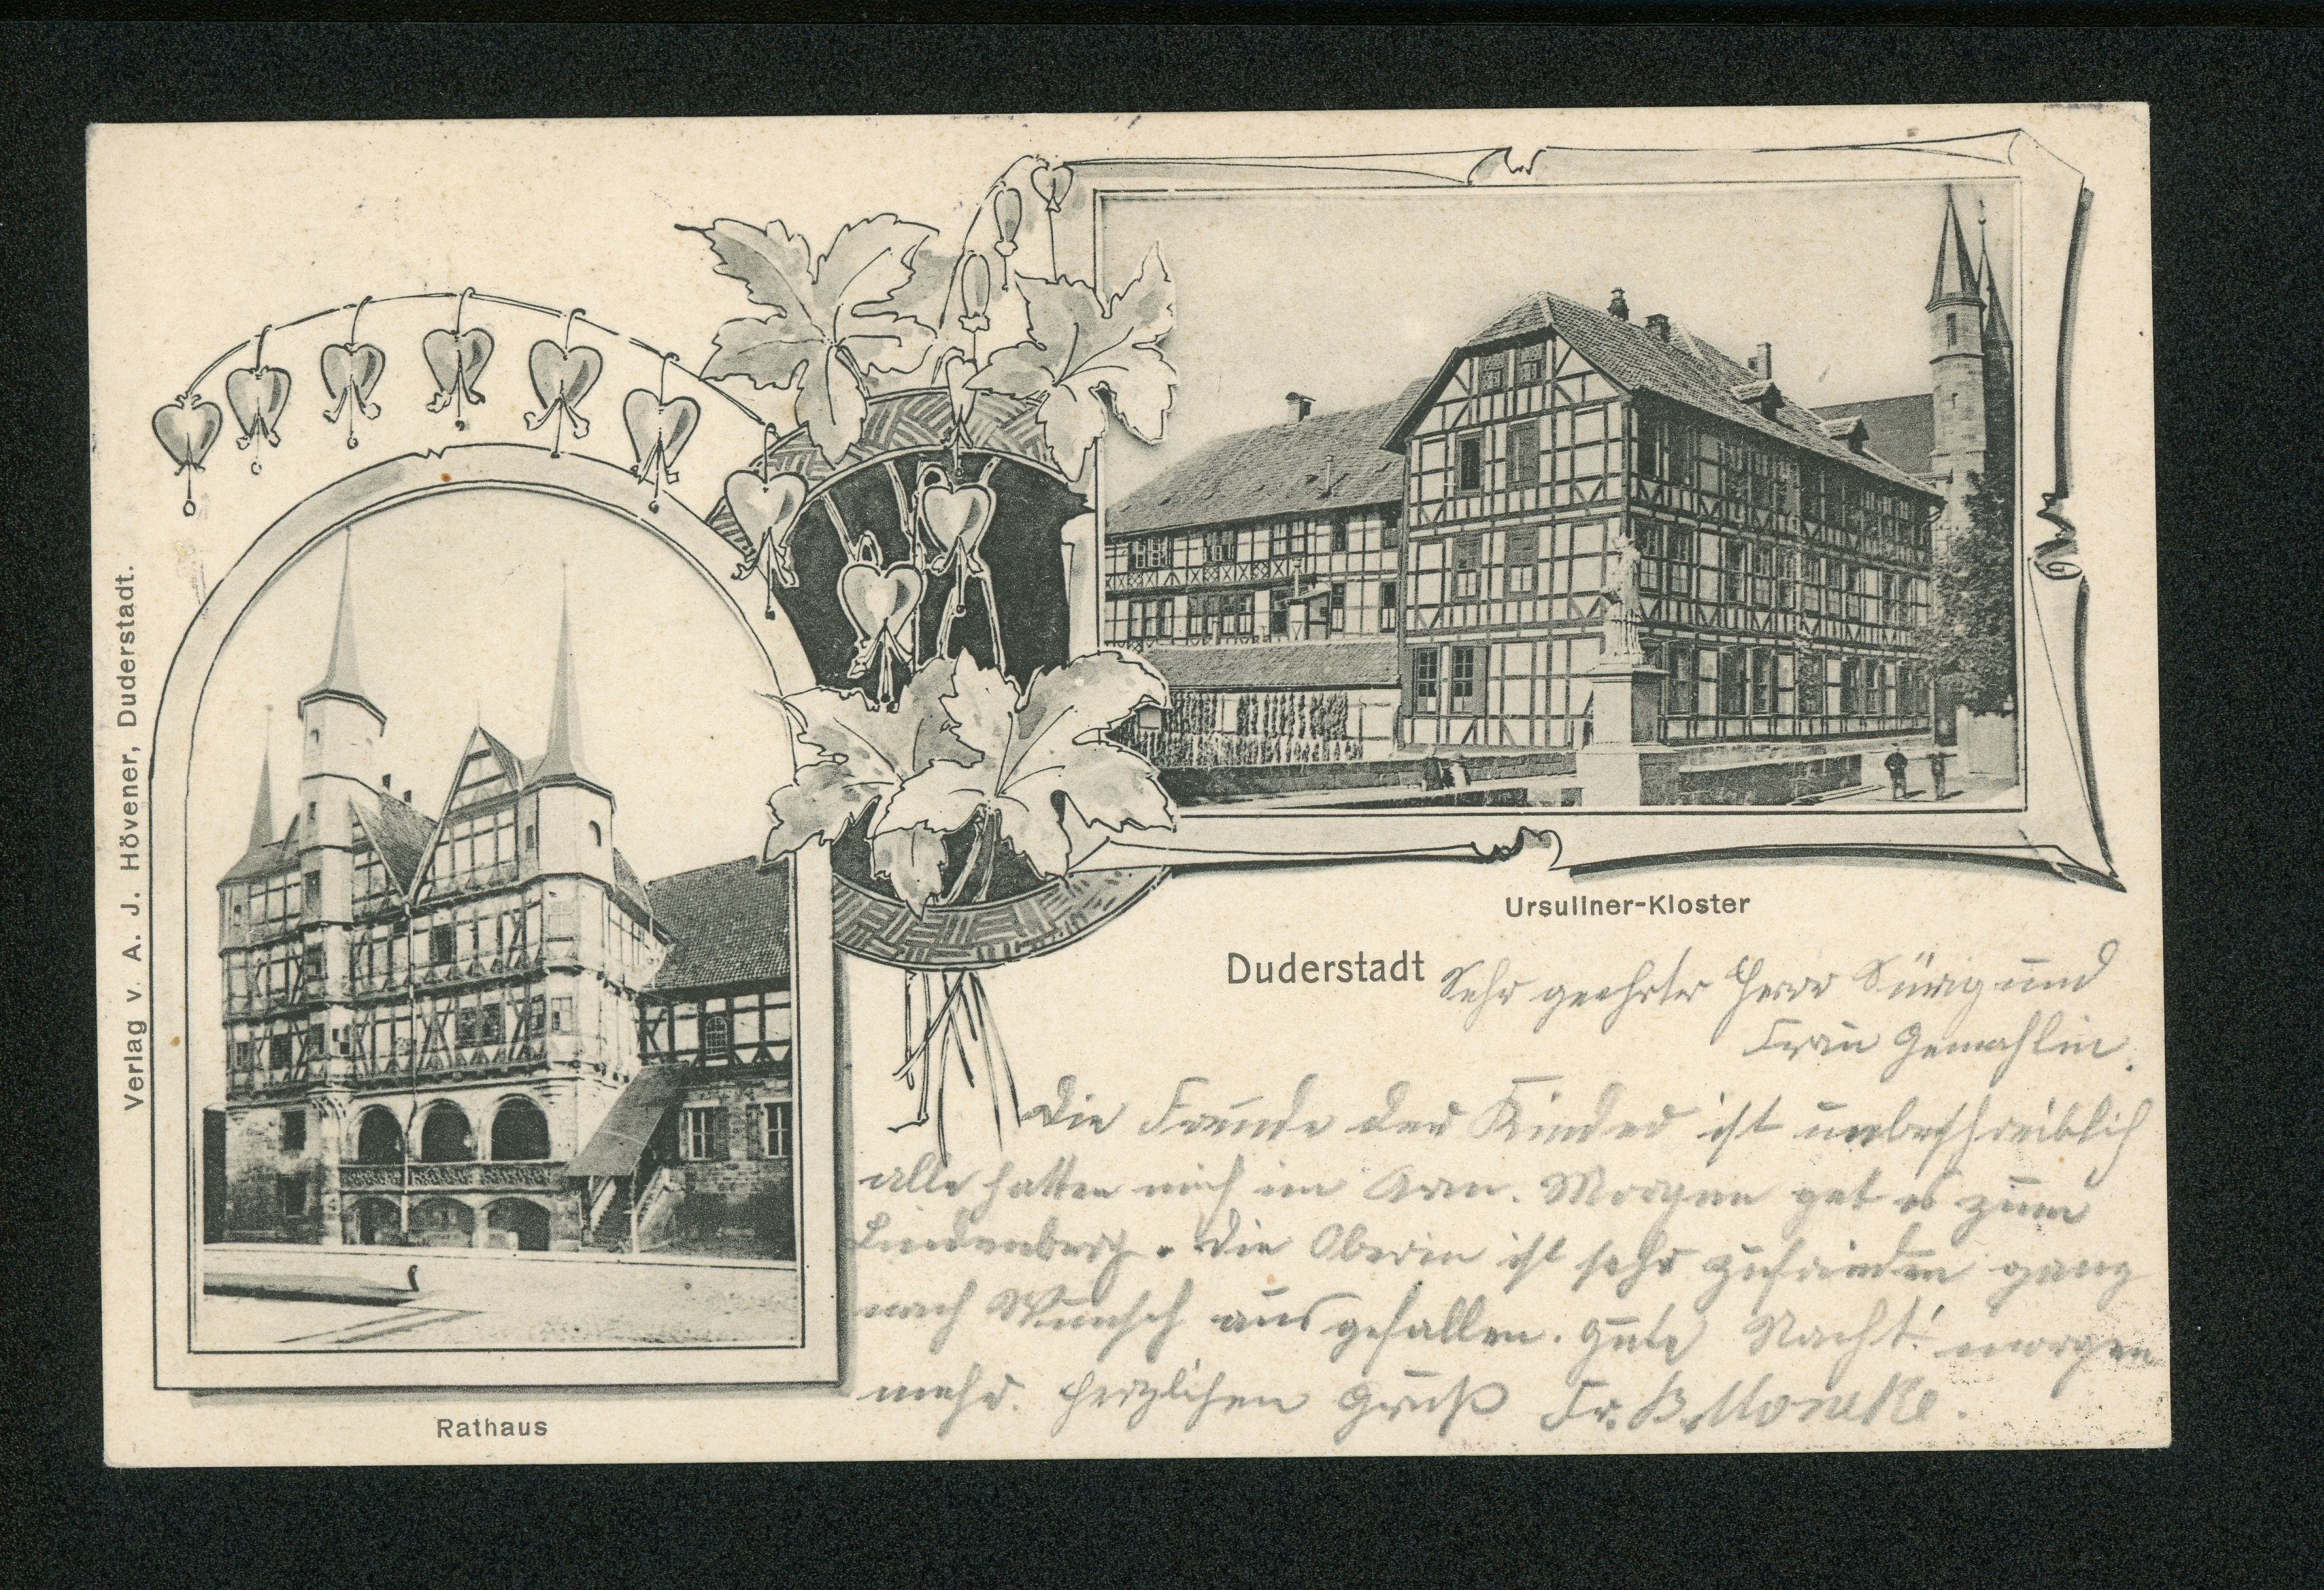 Verlag v. A. J. Hövener, Duderstadt.
Ursuliner-Kloster
Duderstadt
Sehr geehrter Herr Sürig und
Frau Gemahlin.
Die Freude der Kinder ist unbeschreiblich
alle hatten mich im Arm. Morgen get es zum
Lindenberg. Die Oberin ist sehr zufrieden ganz
nach Wunsch ausgefallen. Gute Nacht! morgen
mehr. Herzlichen Gruß Fr. B.
Rathaus